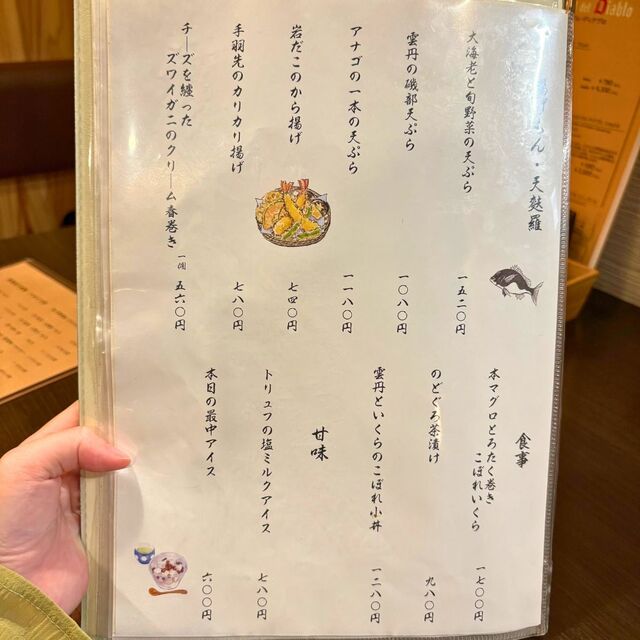 ん・天麩羅
大海老と旬野菜の天ぷら
一五二〇円
雲丹の磯部天ぷら
一〇八〇円
アナゴの一本の天ぷら
一一八〇円
岩だこのから揚げ
七四〇円
手羽先のカリカリ揚げ
七八〇円
チーズを纏った
ズワイガニのクリーム春巻き
一個
五六〇円
食事
本マグロとろたく巻き
こぼれいくら
一七〇〇円
のどぐろ茶漬け
九八〇円
雲丹といくらのこぼれ小丼
一二八〇円
甘味
トリュフの塩ミルクアイス
七八〇円
本日の最中アイス
六〇〇円
Diablo